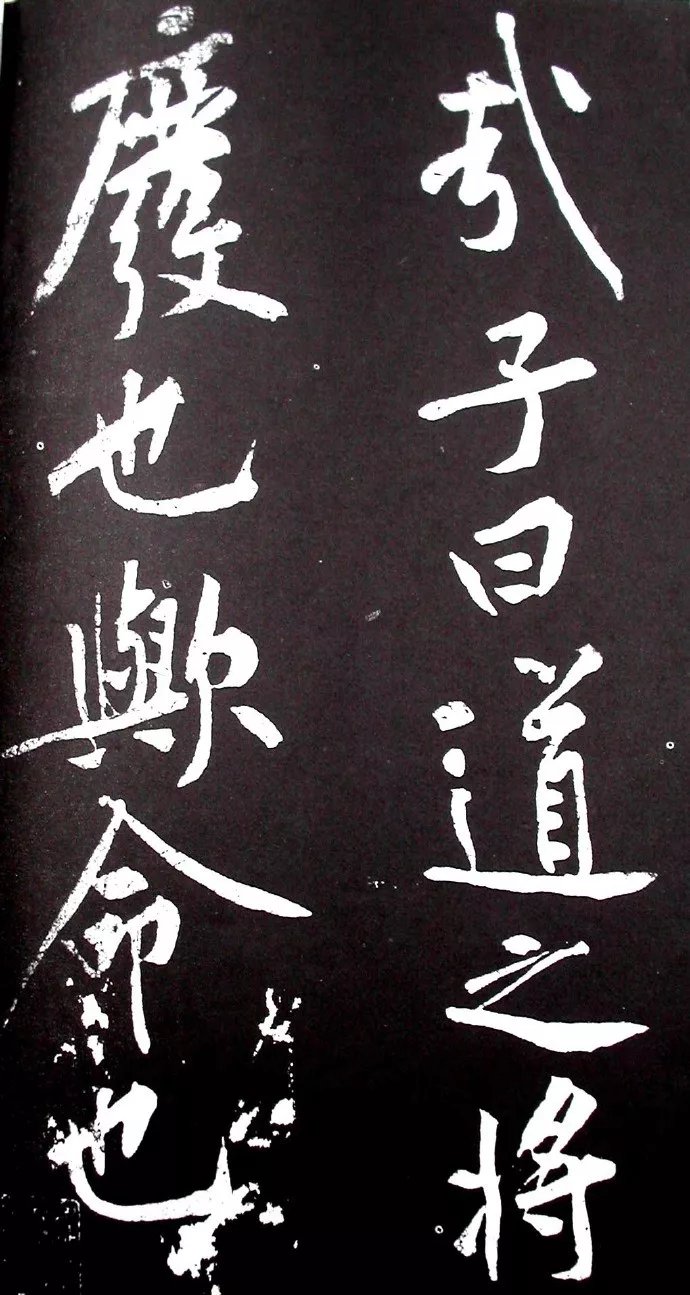 哉子曰道之將
廢也歟命也